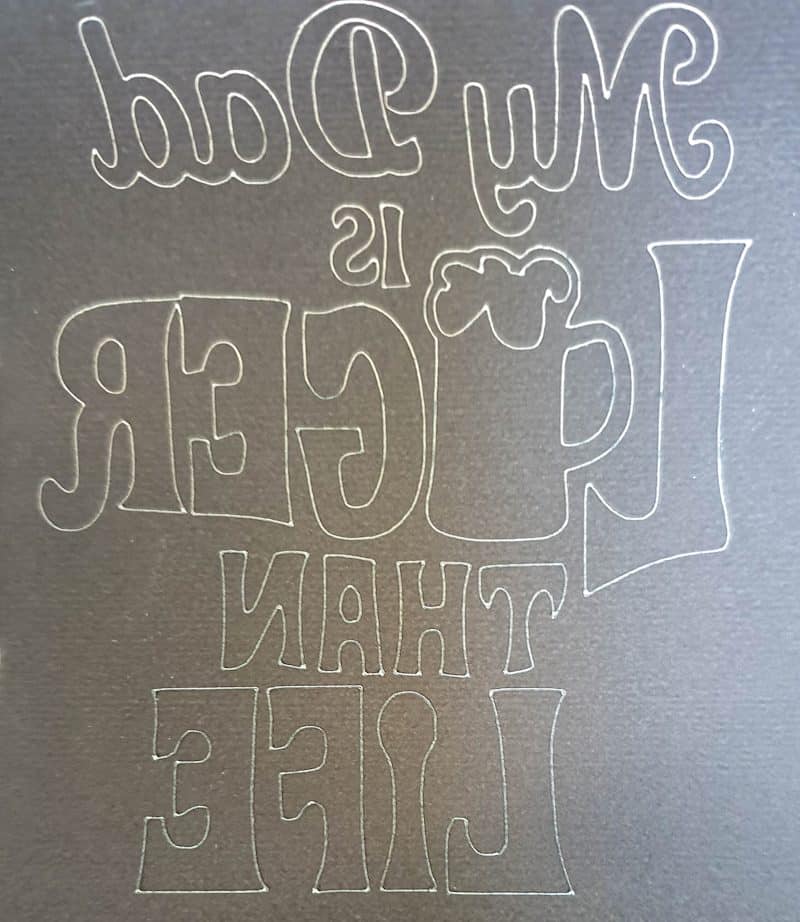 My Dad
IS
LGER
THAN
LIFE